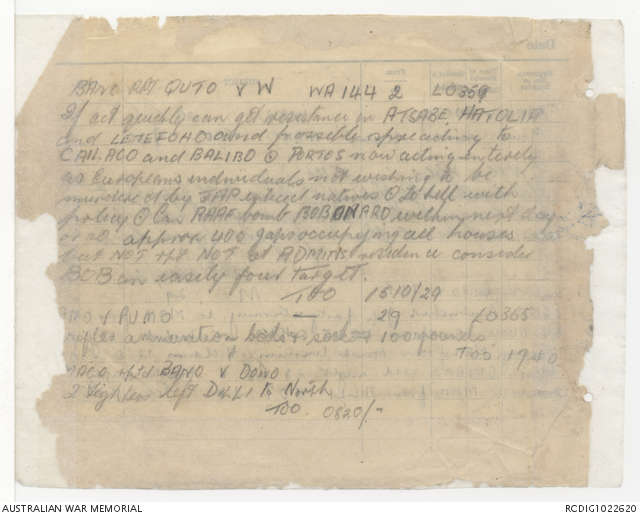 BANO RPT QUTO V W WA 144 2 LO359
If act quickly can get resistance in ATSABE HATOLIA
and LETEFOHO and possible spreading to
CAILACO and BALIBO @ PORTOS now acting entirely
as Europeans individuals not wishing to be
murdered by JAP natives @ To hell with
policy @ Can RAAF bomb BOBONARO within next days
or so approx 400 Japs occupying all houses
but NOT rptd NOT at ADMINS residence consider
BOB an easily target.
TOO 1510/29
V PUMO — 29 LO365
rifles ammunition boots & socks 100 pounds
TOO 1940
rptd BANO V DONO
2 left DILLI to North
TOO. 0820/-
AUSTRALIAN WAR MEMORIAL RCDIG1022620